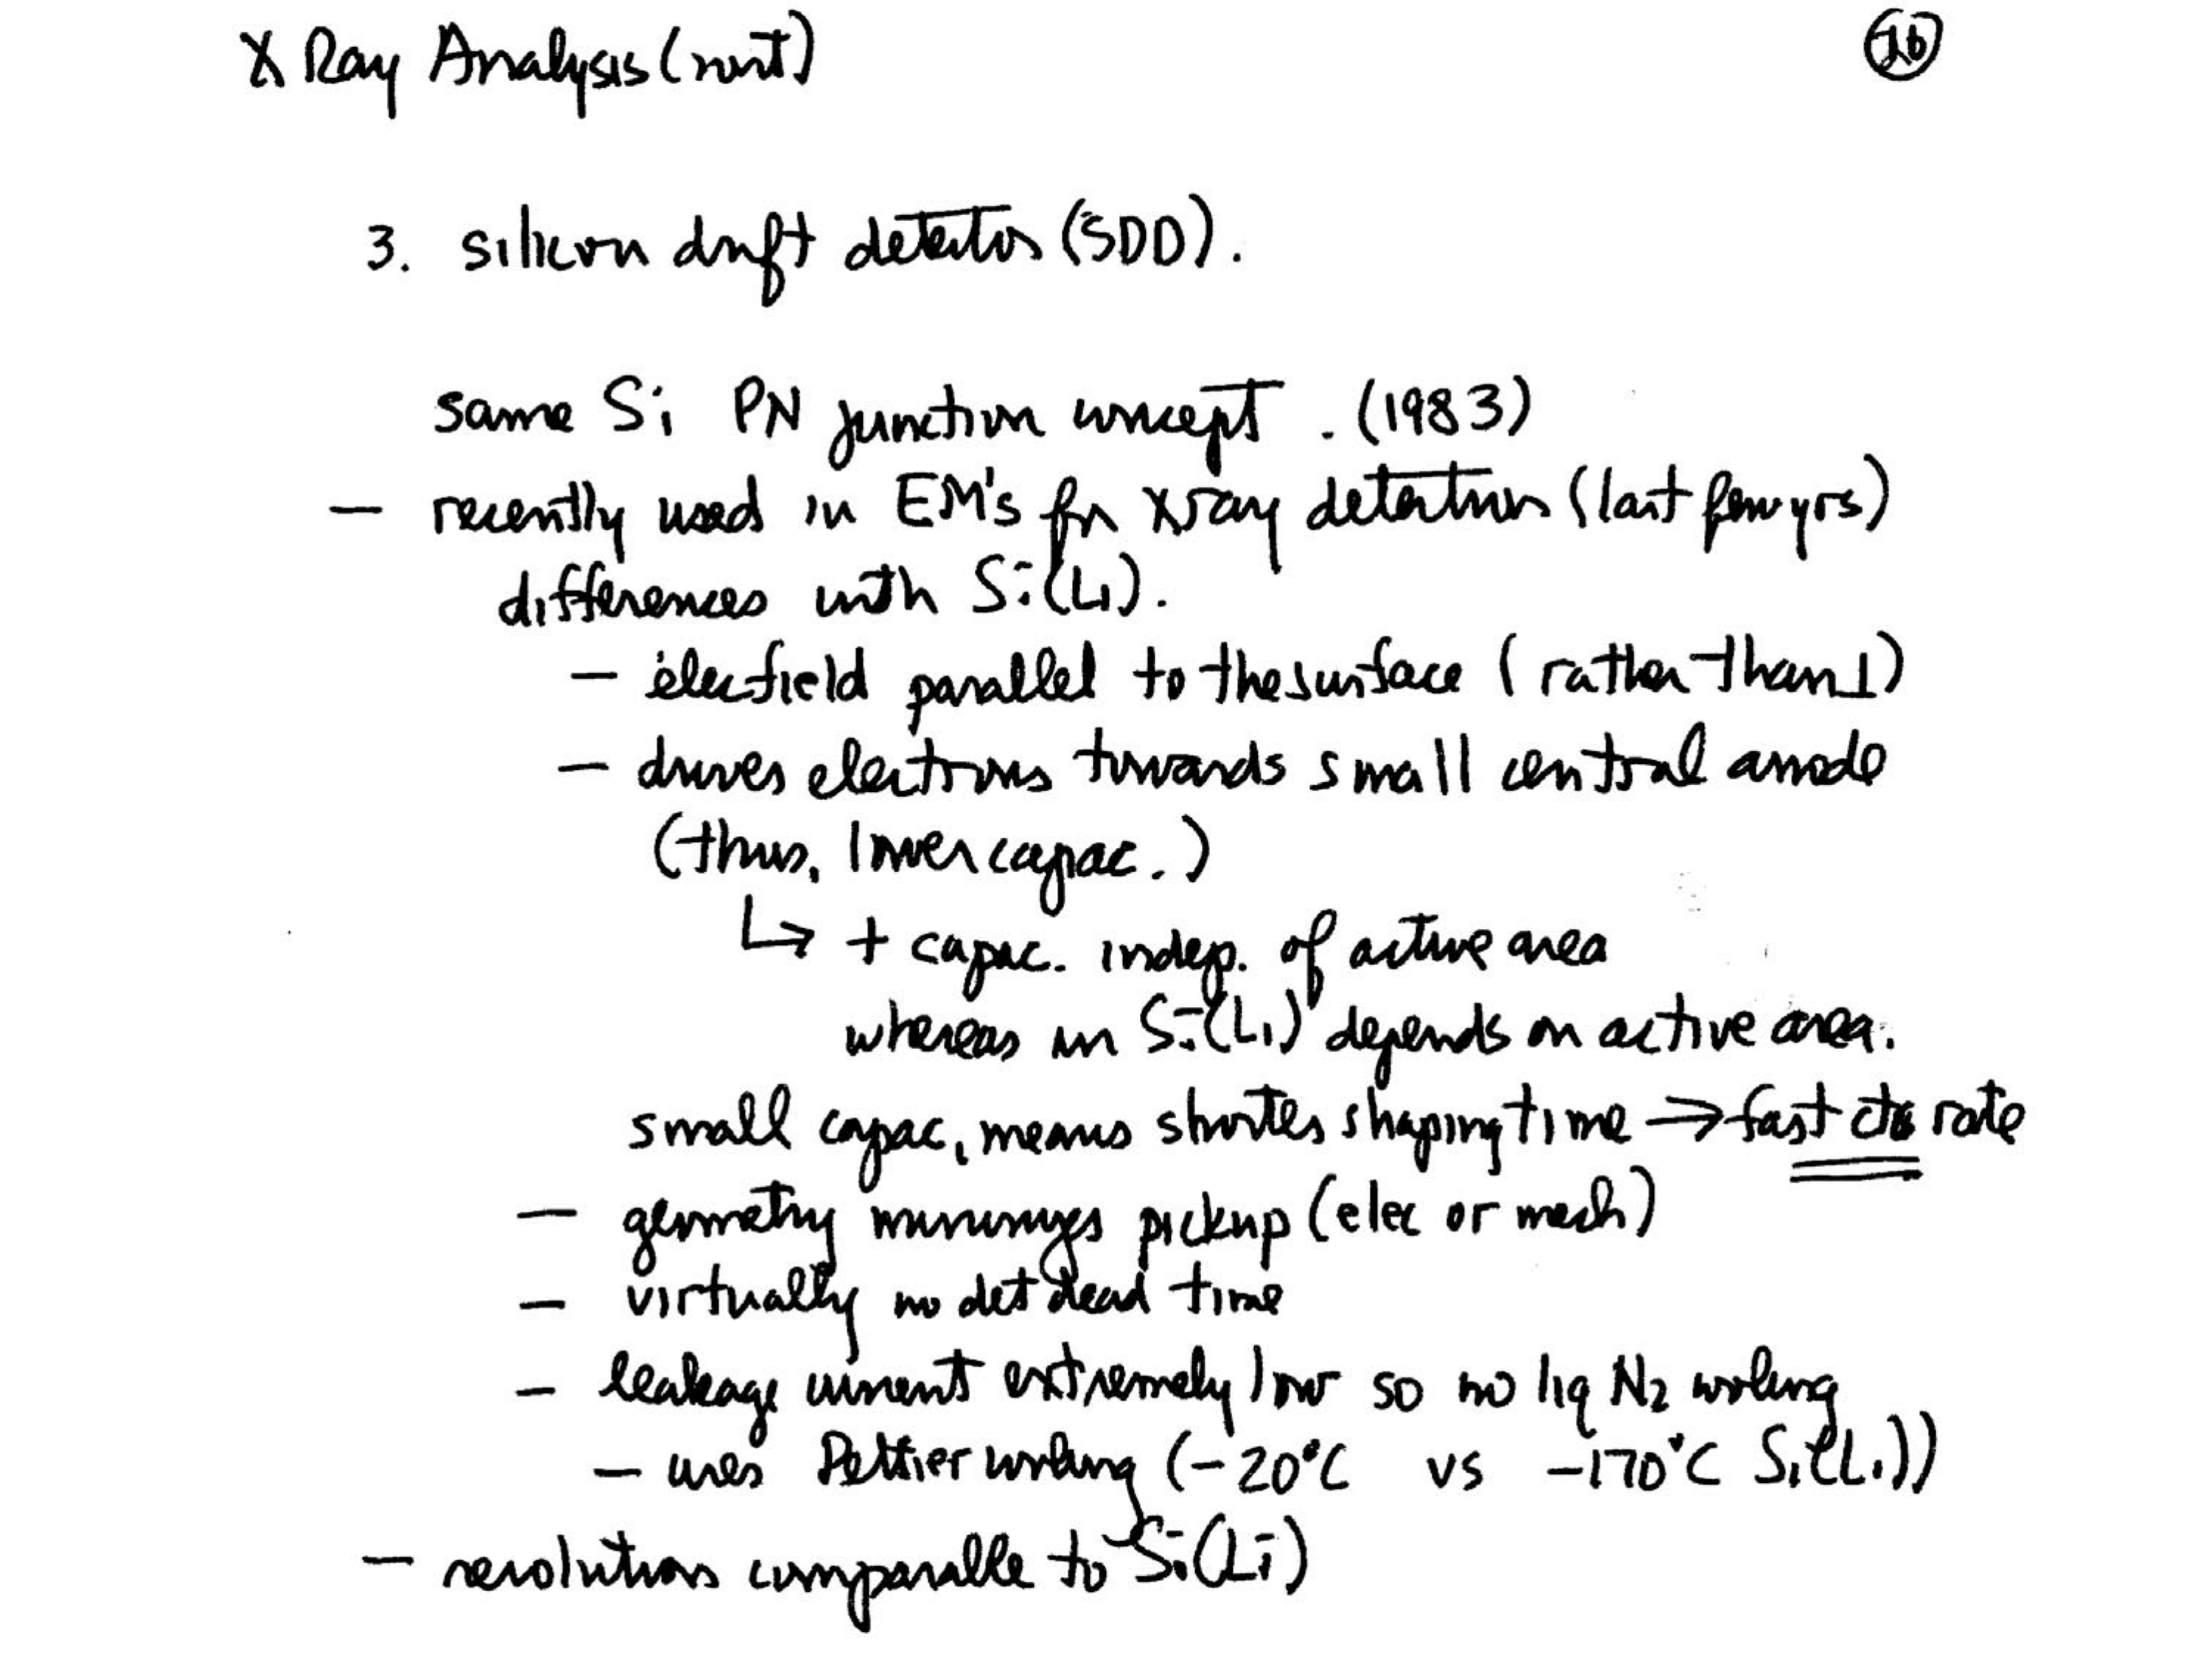 X Ray Analysis (cont)
3. silicon drift detector (SDD).
same Si PN junction concept. (1983)
— recently used in EM's for xray detection (last few yrs)
differences with Si(Li).
— elec field parallel to the surface (rather than ⊥)
— drives electrons towards small central anode
(thus, lower capac.)
↳ + capac. indep. of active area
whereas in Si(Li) depends on active area.
small capac, means shorter shaping time → fast cts rate
— geometry minimizes pickup (elec or mech)
— virtually no det dead time
— leakage current extremely low so no liq N2 cooling
— uses Peltier cooling (-20°C vs -170°C Si(Li))
— resolution comparable to Si(Li)